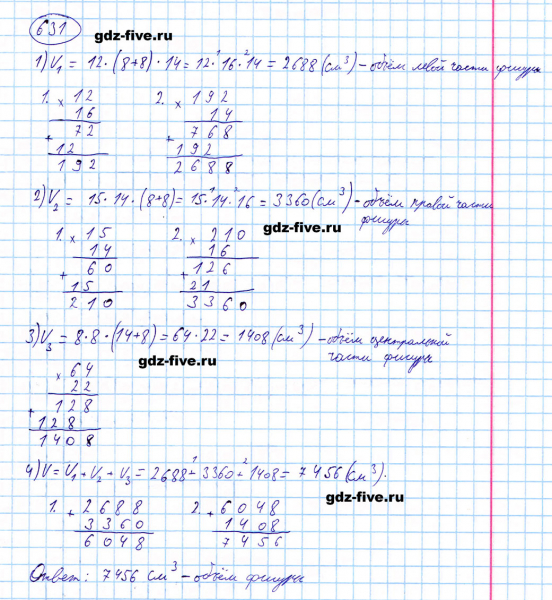 631
gdz-five.ru
1) V₁ = 12 · (8+8) · 14 = 12 ·¹ 16 ·² 14 = 2688 (см³) - объём левой части фигуры
1. × 12
16
72
+
12
192
2. × 192
14
+ 768
192
2688
2) V₂ = 15 · 14 · (8+8) = 15 ·¹ 14 ·² 16 = 3360 (см³) - объём правой части
фигуры
gdz-five.ru
1. × 15
14
+ 60
15
210
2. × 210
16
+ 126
21
3360
3) V₃ = 8 · 8 · (14+8) = 64 · 22 = 1408 (см³) - объём центральной
части фигуры
gdz-five.ru
× 64
22
+ 128
128
1408
4) V = V₁ + V₂ + V₃ = 2688 +¹ 3360 +² 1408 = 7456 (см³).
gdz-five.ru
1. + 2688
3360
6048
2. + 6048
1408
7456
Ответ: 7456 см³ - объём фигуры
gdz-five.ru